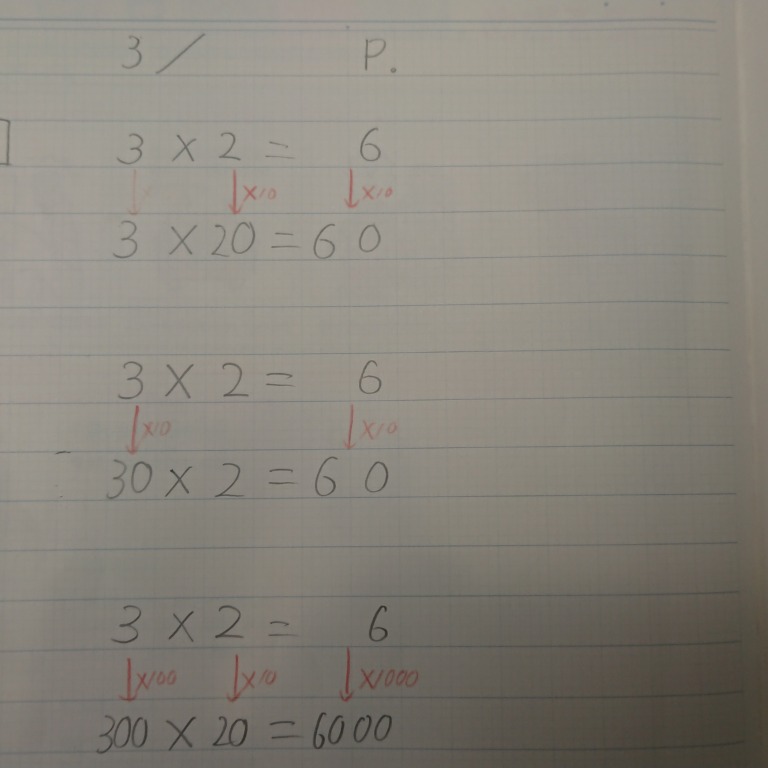 3/ P.
3 × 2 = 6
↓ ↓×10 ↓×10
3 × 20 = 60
3 × 2 = 6
↓×10 ↓×10
30 × 2 = 60
3 × 2 = 6
↓×100 ↓×10 ↓×1000
300 × 20 = 6000